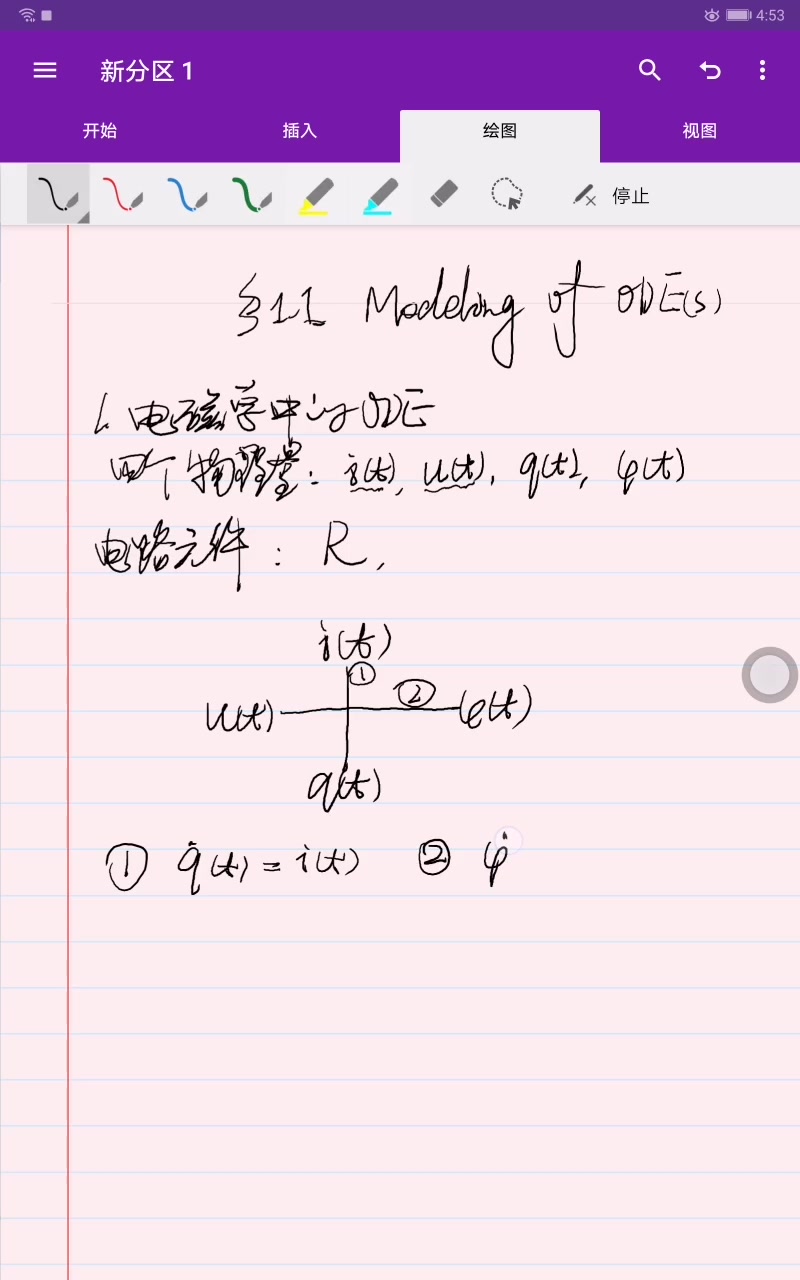 4:53
新分区 1
开始 插入 绘图 视图
停止
§1.1 Modeling of ODE(s)
1. 电磁学中的ODE
四个物理量: i(t), u(t), q(t), φ(t)
电路元件: R,
i(t)
①
②
u(t) φ(t)
q(t)
① q̇(t) = i(t) ② φ̇